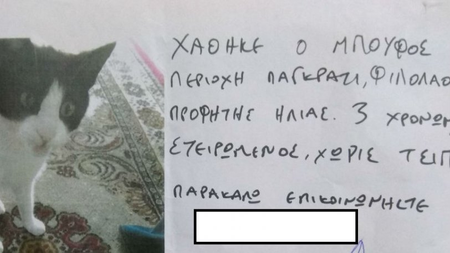 ΧΑΘΗΚΕ Ο ΜΠΟΥΦΟΣ
ΠΕΡΙΟΧΗ ΠΑΓΚΡΑΤΙ, ΦΙΛΟΛΑΟ
ΠΡΟΦΗΤΗΣ ΗΛΙΑΣ. 3 ΧΡΟΝΩΝ
ΣΤΕΙΡΩΜΕΝΟΣ, ΧΩΡΙΣ ΤΣΙΠ
ΠΑΡΑΚΑΛΩ ΕΠΙΚΟΙΝΩΝΗΣΤΕ